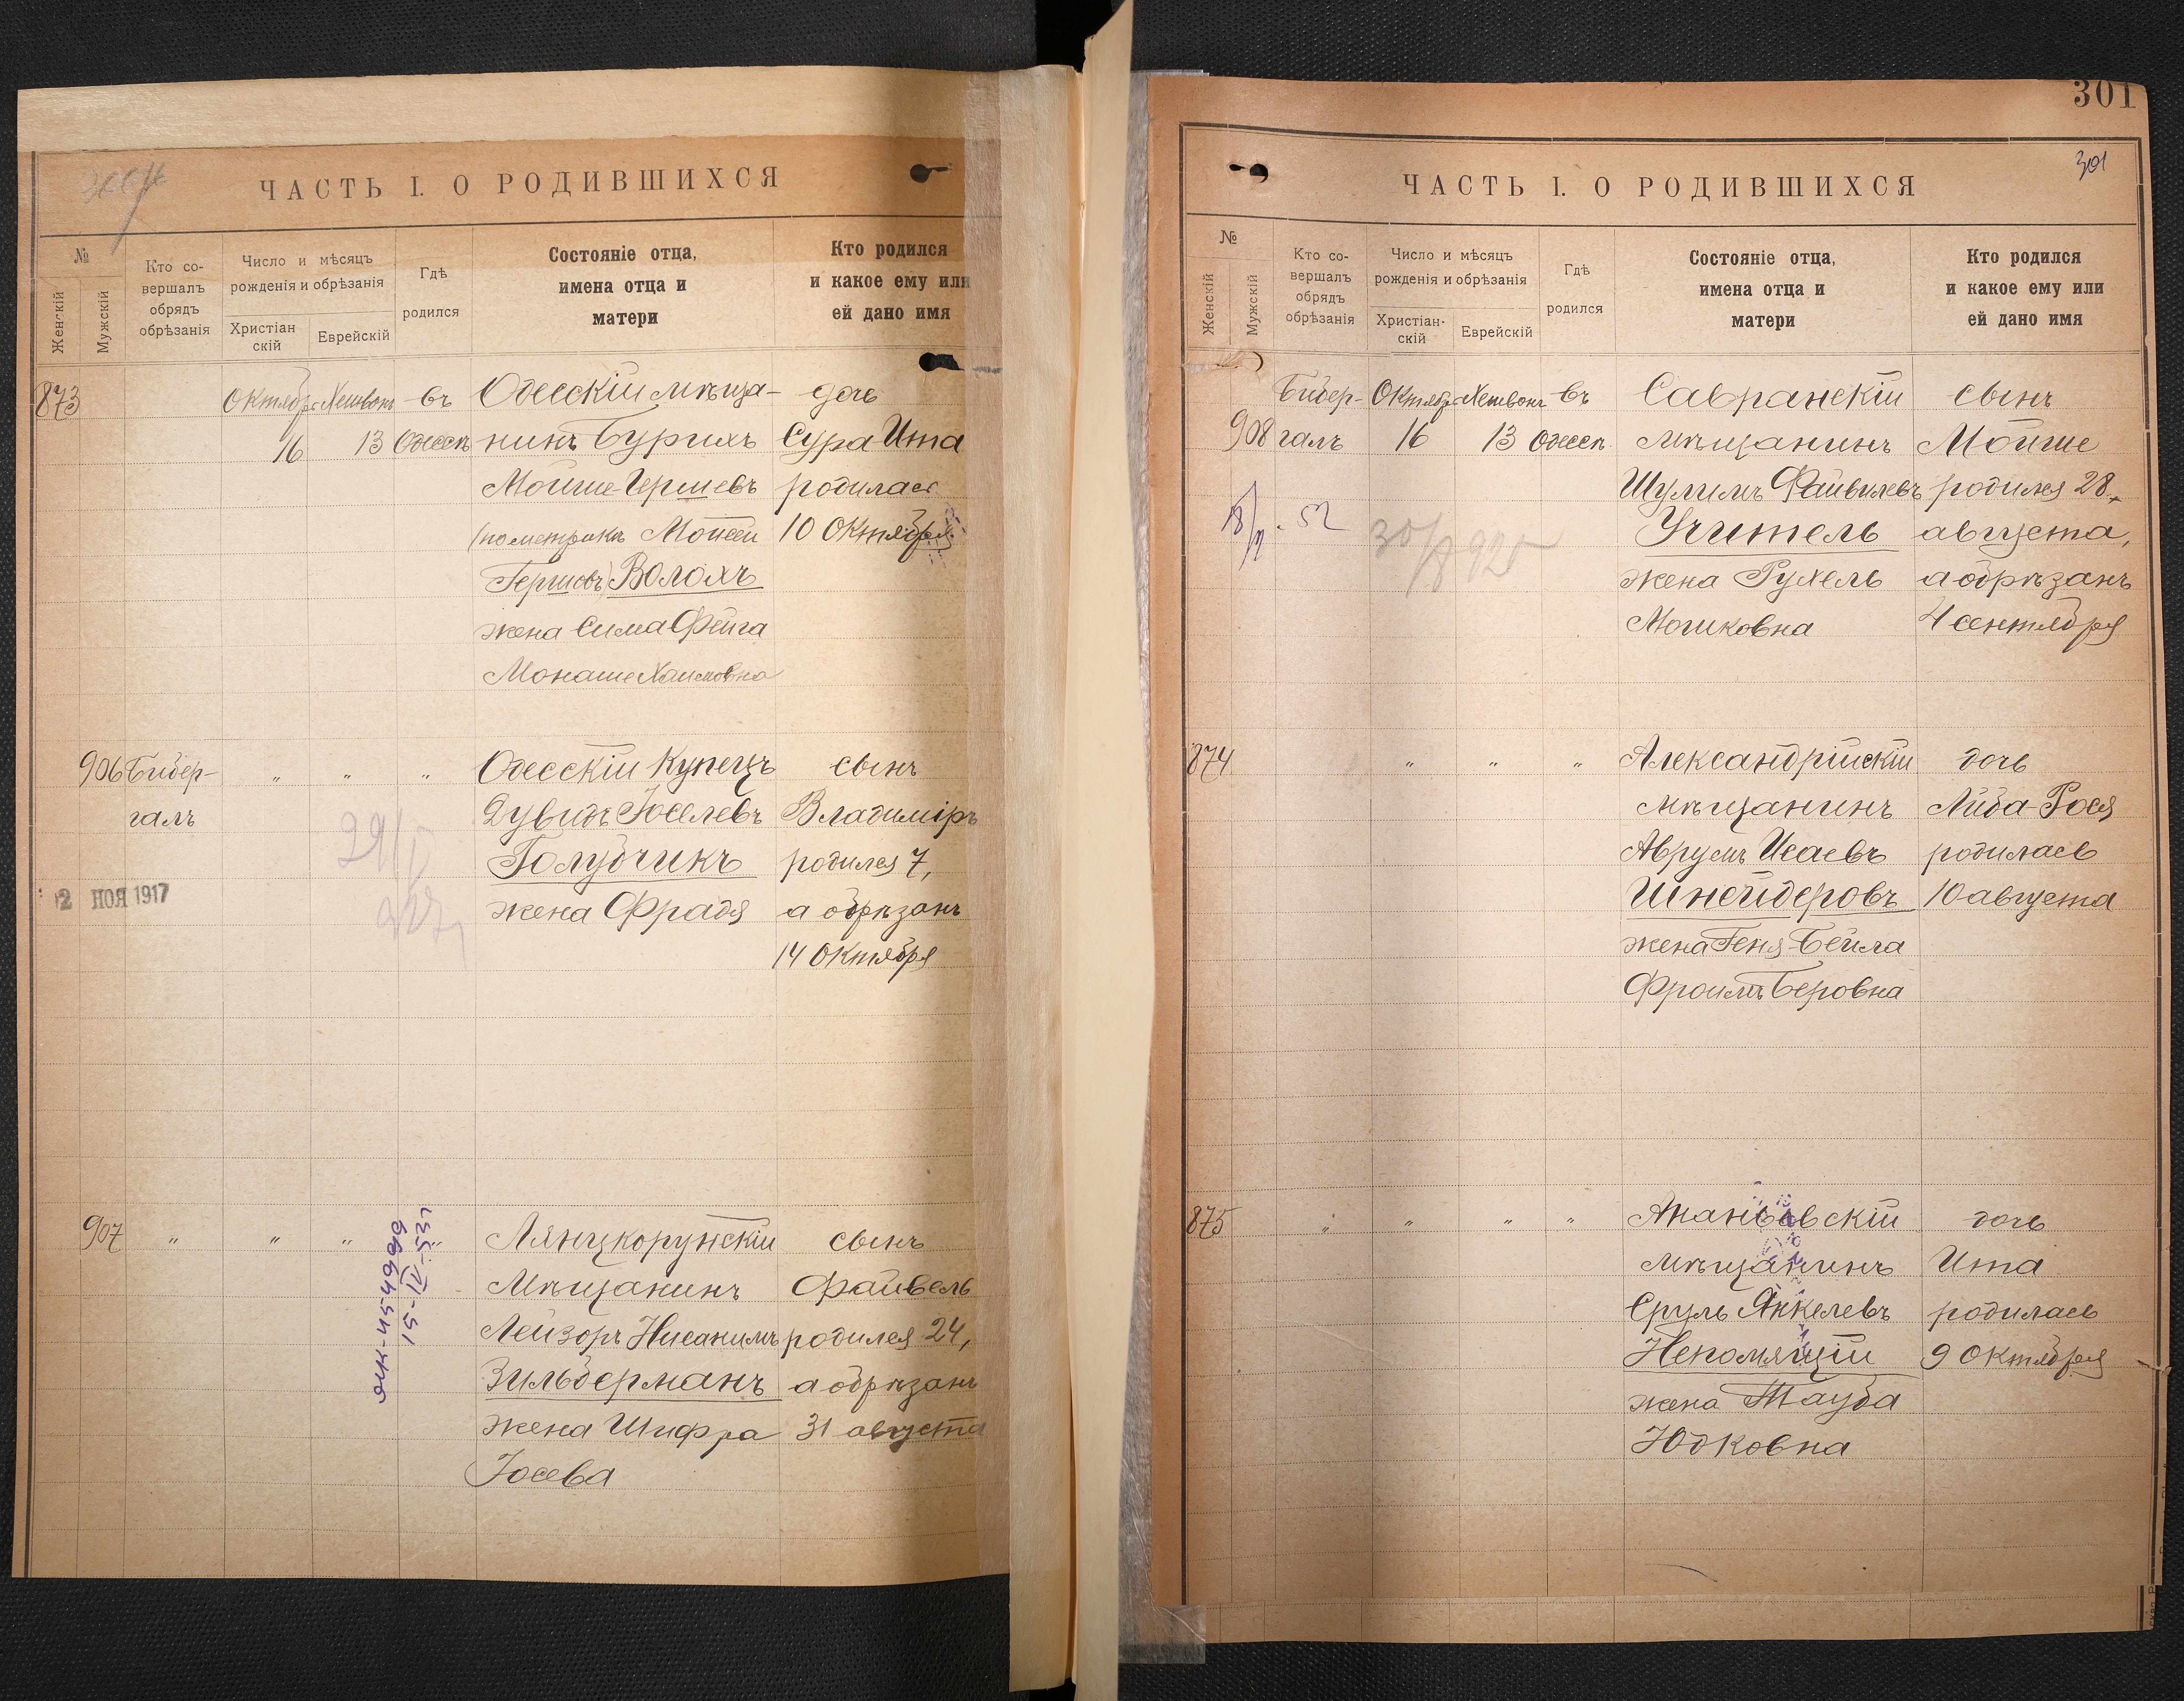 ЧАСТЬ I. О РОДИВШИХСЯ
№
Женскій
Мужскій
Кто со-
вершалъ
обрядъ
обрѣзанія
Число и мѣсяцъ
рожденія и обрѣзанія
Христіан
скій
Еврейскій
Гдѣ
родился
Состояніе отца,
имена отца и
матери
Кто родился
и какое ему или
ей дано имя
873 Октября Хешвонъ въ Одесскій мѣща- дочь
16 13 Одессѣ нинъ Бурихъ Сура Ита
Мойше-Гершевъ родилась
(по метрикѣ Мойсей 10 Октября
Гершовъ) Волохъ
жена Сима Фейга
Монаше Хаимовна
906 Бидер- " " " Одесскій Купецъ сынъ
галъ Дувидъ Іоселевъ Владиміръ
Голубчикъ родился 7,
12 НОЯ 1917 жена Фрадя а обрѣзанъ
14 Октября
907 " " " " Лянцкорунскій сынъ
Мѣщанинъ Файвель
Лейзоръ Нисанимъ родился 24,
Зильберманъ а обрѣзанъ
жена Шифра 31 августа
Іосева
301
301
ЧАСТЬ I. О РОДИВШИХСЯ
№
Женскій
Мужскій
Кто со-
вершалъ
обрядъ
обрѣзанія
Число и мѣсяцъ
рожденія и обрѣзанія
Христіан-
скій
Еврейскій
Гдѣ
родился
Состояніе отца,
имена отца и
матери
Кто родился
и какое ему или
ей дано имя
Бидер- Октября Хешвонъ въ Савранскій сынъ
908 галъ 16 13 Одессѣ мѣщанинъ Мойше
Шулимъ Файвилевъ родился 28
Учитель августа,
жена Рухель а обрѣзанъ
Мошковна 4 сентября
874 " " " Александрійскій дочь
мѣщанинъ Либа-Рося
Аврумъ Исаевъ родилась
Шнейдеровъ 10 августа
жена Геня-Бейла
Фроимъ Беровна
875 " " " " Ананьевскій дочь
мѣщанинъ Ита
Сруль Янкелевъ родилась
Непомящій 9 Октября
жена Тауба
Юдковна